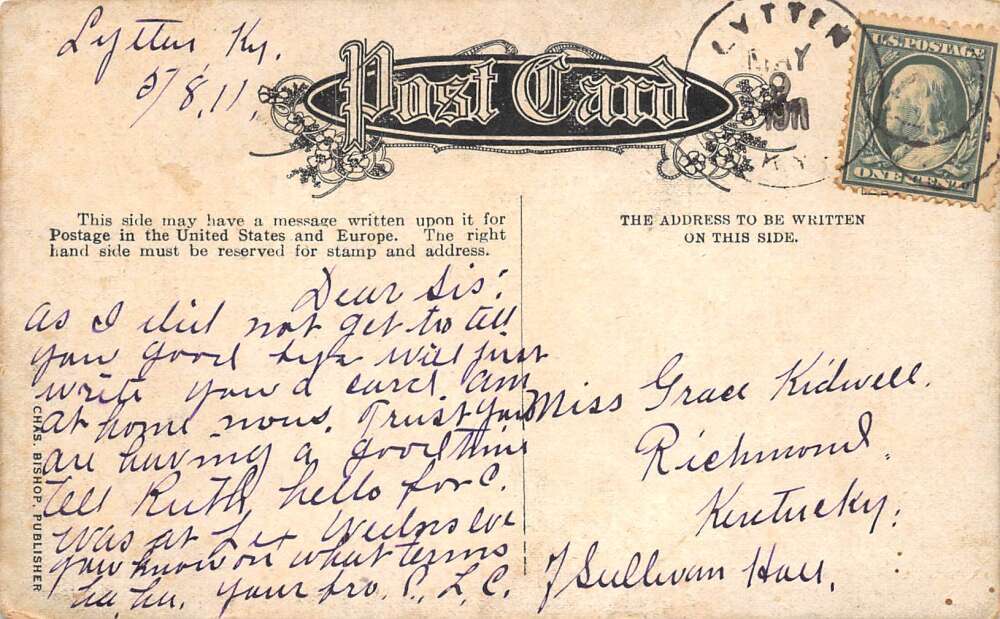 Lytten Ky.
5/8,11,
Post Card
LYTTEN
MAY
9
1911
KY.
U.S. POSTAGE
ONE CENT
This side may have a message written upon it for
Postage in the United States and Europe. The right
hand side must be reserved for stamp and address.
THE ADDRESS TO BE WRITTEN
ON THIS SIDE.
Dear Sis:
as I did not get to tell
you good bye will just
write you a card, am
at home now. Trust you
are having a good time
tell Ruth hello for C.
was at Lex Weds eve
you know on what terms
ha, ha. your bro. C. L. C.
Miss Grace Kidwell.
Richmond,
Kentucky.
Sullivan Hall,
CHAS. BISHOP, PUBLISHER